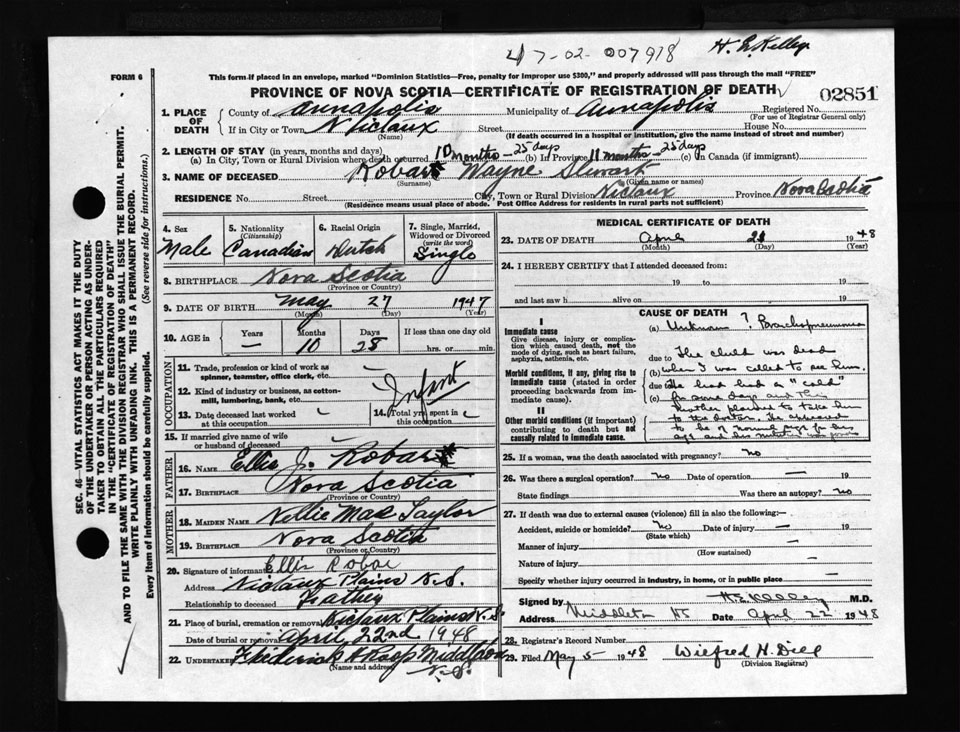 47-02-007918
H. E. Kelley
FORM 6
This form if placed in an envelope, marked "Dominion Statistics—Free, penalty for improper use $300," and properly addressed will pass through the mail "FREE"
PROVINCE OF NOVA SCOTIA—CERTIFICATE OF REGISTRATION OF DEATH
02851
1. PLACE OF DEATH
County of Annapolis Municipality of Annapolis Registered No.
(For use of Registrar General only)
If in City or Town Nictaux Street House No.
(Name) (If death occurred in a hospital or institution, give the name instead of street and number)
2. LENGTH OF STAY (in years, months and days)
(a) In City, Town or Rural Division where death occurred 10 months - 25 days (b) In Province 11 months - 25 days (c) in Canada (if immigrant)
3. NAME OF DECEASED Robar Wayne Stewart
(Surname) (Given name or names)
RESIDENCE No. Street City, Town or Rural Division Nictaux Province Nova Scotia
(Residence means usual place of abode. Post Office Address for residents in rural parts not sufficient)
4. Sex
Male
5. Nationality
(Citizenship)
Canadian
6. Racial Origin
Dutch
7. Single, Married, Widowed or Divorced
(write the word)
Single
8. BIRTHPLACE Nova Scotia
(Province or Country)
9. DATE OF BIRTH May 27 1947
(Month) (Day) (Year)
10. AGE in Years Months Days If less than one day old
— 10 28 hrs. or min.
OCCUPATION
11. Trade, profession or kind of work as spinner, teamster, office clerk, etc.
12. Kind of industry or business, as cotton-mill, lumbering, bank, etc.
Infant
13. Date deceased last worked at this occupation
14. Total yrs spent in
15. If married give name of wife or husband of deceased
FATHER
16. NAME Ellis J. Robar
17. BIRTHPLACE Nova Scotia
(Province or Country)
MOTHER
18. MAIDEN NAME Nellie Mae Taylor
19. BIRTHPLACE Nova Scotia
(Province or Country)
20. Signature of informant Ellis Robar
Nictaux Plains N.S.
Relationship to deceased Father
21. Place of burial, cremation or removal Nictaux Plains N.S.
Date of burial or removal April 22nd 1948
22. UNDERTAKER Frederick Roop Middleton
(Name and address)
N.S.
MEDICAL CERTIFICATE OF DEATH
23. DATE OF DEATH April 21 1948
(Month) (Day) (Year)
24. I HEREBY CERTIFY that I attended deceased from:
19 to 19
and last saw h alive on 19
CAUSE OF DEATH
I
Immediate cause
Give disease, injury or complication which caused death, not the mode of dying, such as heart failure, asphyxia, asthenia, etc.
Morbid conditions, if any, giving rise to immediate cause (stated in order proceeding backwards from immediate cause).
II
Other morbid conditions (if important) contributing to death but not causally related to immediate cause.
(a) Unknown ? Bronchopneumonia
due to The child was dead
(b) when I was called to see him.
due to He had had a "cold"
(c) for some days and
mother planned to take him
to the doctor. He appeared
to be of normal size for his
age and his
25. If a woman, was the death associated with pregnancy? No
26. Was there a surgical operation? No Date of operation — 19
State findings Was there an autopsy? No
27. If death was due to external causes (violence) fill in also the following:—
Accident, suicide or homicide? No Date of injury — 19
(State which)
Manner of injury
(How sustained)
Nature of injury
Specify whether injury occurred in industry, in home, or in public place
Signed by H. E. Kelley M.D.
Address Middleton NS Date April 22 1948
28. Registrar's Record Number
29. Filed May 5 1948 Wilfred H. Dill
(Division Registrar)
SEC. 46—VITAL STATISTICS ACT MAKES IT THE DUTY
OF THE UNDERTAKER OR PERSON ACTING AS UNDERTAKER TO OBTAIN ALL THE PARTICULARS REQUIRED
IN THE "CERTIFICATE OF REGISTRATION OF DEATH"
AND TO FILE THE SAME WITH THE DIVISION REGISTRAR WHO SHALL ISSUE THE BURIAL PERMIT.
WRITE PLAINLY WITH UNFADING INK. THIS IS A PERMANENT RECORD.
Every item of information should be carefully supplied. (See reverse side for instructions.)